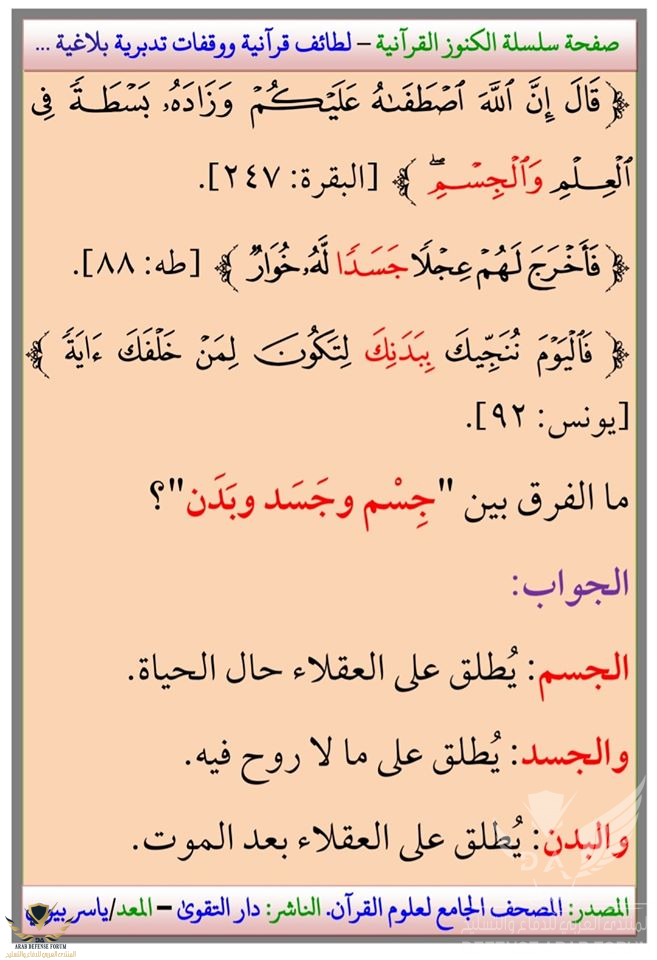 صفحة سلسلة الكنوز القرآنية – لطائف قرآنية ووقفات تدبرية بلاغية ...
﴿ قَالَ إِنَّ ٱللَّهَ ٱصْطَفَىٰهُ عَلَيْكُمْ وَزَادَهُۥ بَسْطَةً فِى
ٱلْعِلْمِ وَٱلْجِسْمِۖ ﴾ [البقرة: ٢٤٧].
﴿ فَأَخْرَجَ لَهُمْ عِجْلًا جَسَدًا لَّهُۥ خُوَارٌ ﴾ [طه: ٨٨].
﴿ فَٱلْيَوْمَ نُنَجِّيكَ بِبَدَنِكَ لِتَكُونَ لِمَنْ خَلْفَكَ ءَايَةً ﴾
[يونس: ٩٢].
ما الفرق بين "جِسْم وجَسَد وبَدَن"؟
الجواب:
الجسم: يُطلق على العقلاء حال الحياة.
والجسد: يُطلق على ما لا روح فيه.
والبدن: يُطلق على العقلاء بعد الموت.
المصدر: المصحف الجامع لعلوم القرآن. الناشر: دار التقوىٰ – المعد/ياسر بيومي
ARAB DEFENSE FORUM
المنتدى العربي للدفاع والتسليح
DEFENSE ARAB FORUM